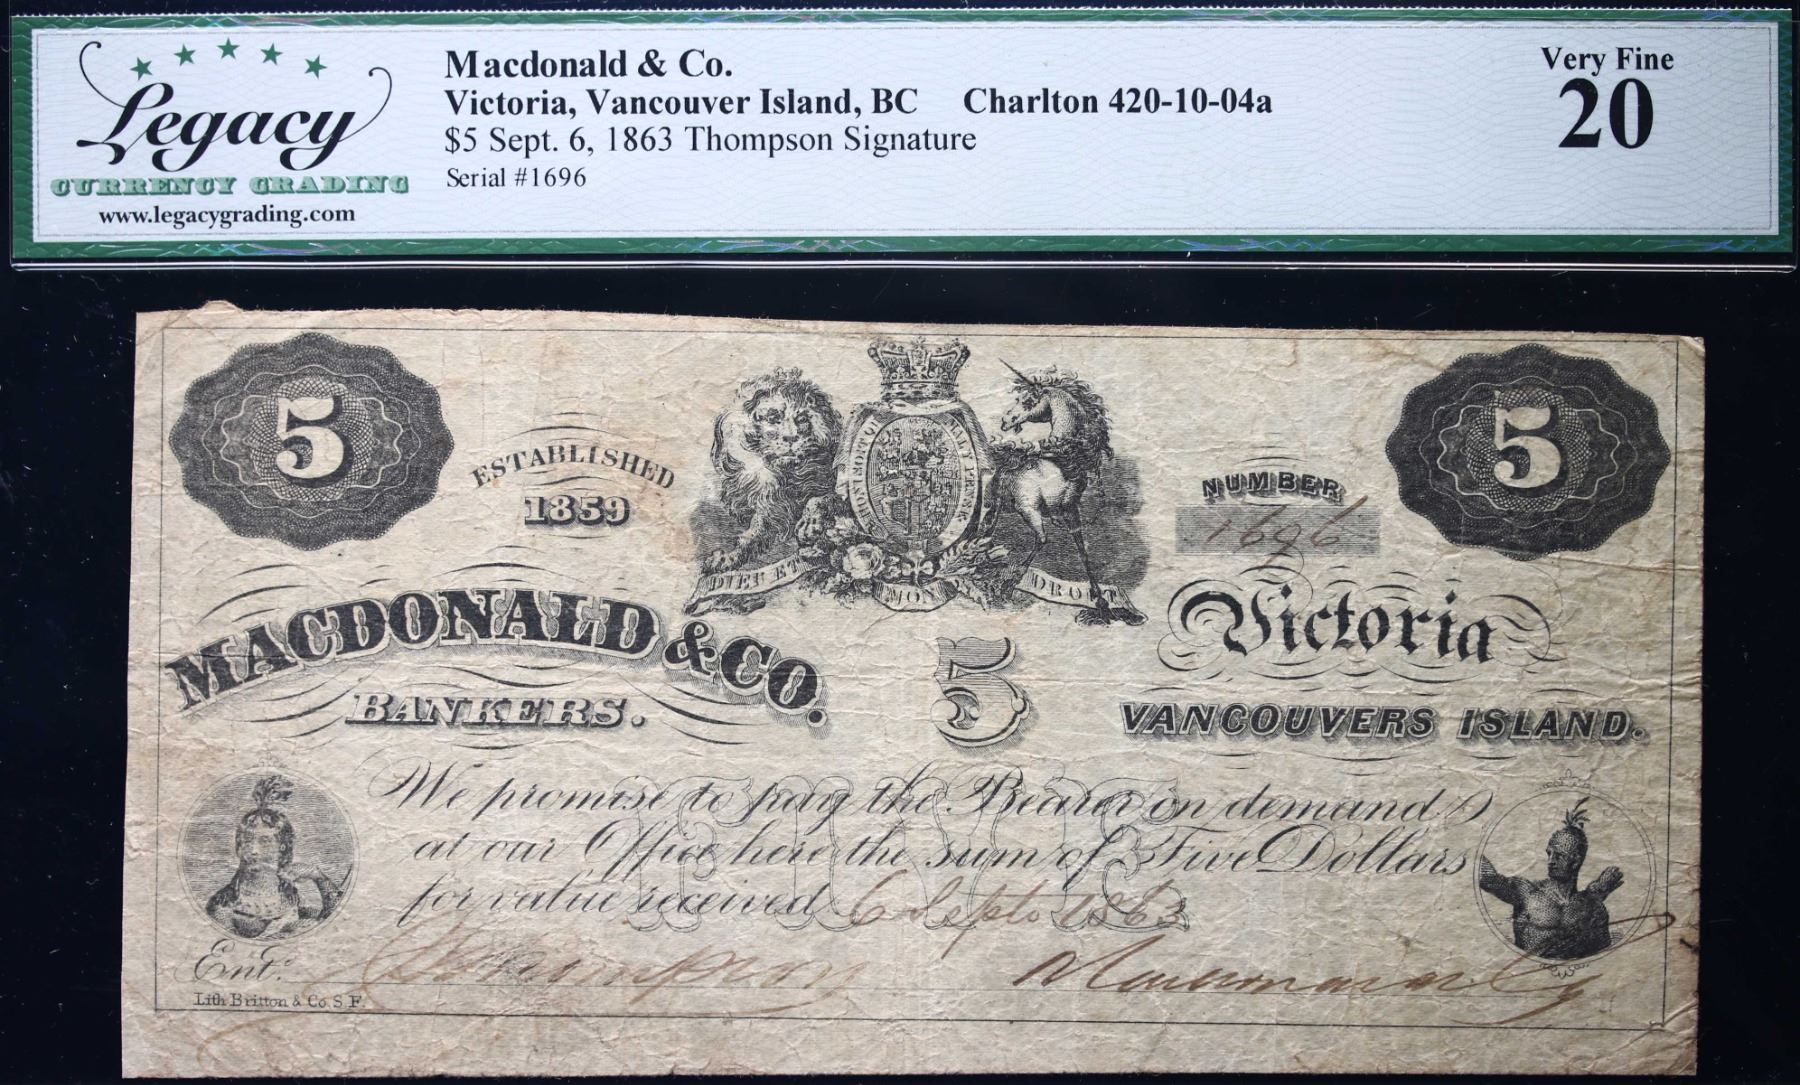 Legacy
CURRENCY GRADING
www.legacygrading.com
Macdonald & Co.
Victoria, Vancouver Island, BC Charlton 420-10-04a
$5 Sept. 6, 1863 Thompson Signature
Serial #1696
Very Fine
20
5
ESTABLISHED
1859
DIEU ET
MON
DROIT
NUMBER
1696
5
MACDONALD & CO.
BANKERS.
5
Victoria
VANCOUVERS ISLAND.
We promise to pay the Bearer on demand
at our Office here the sum of Five Dollars
for value received 6 Septr 1863
Ent.
Thompson
Lith Britton & Co S.F.